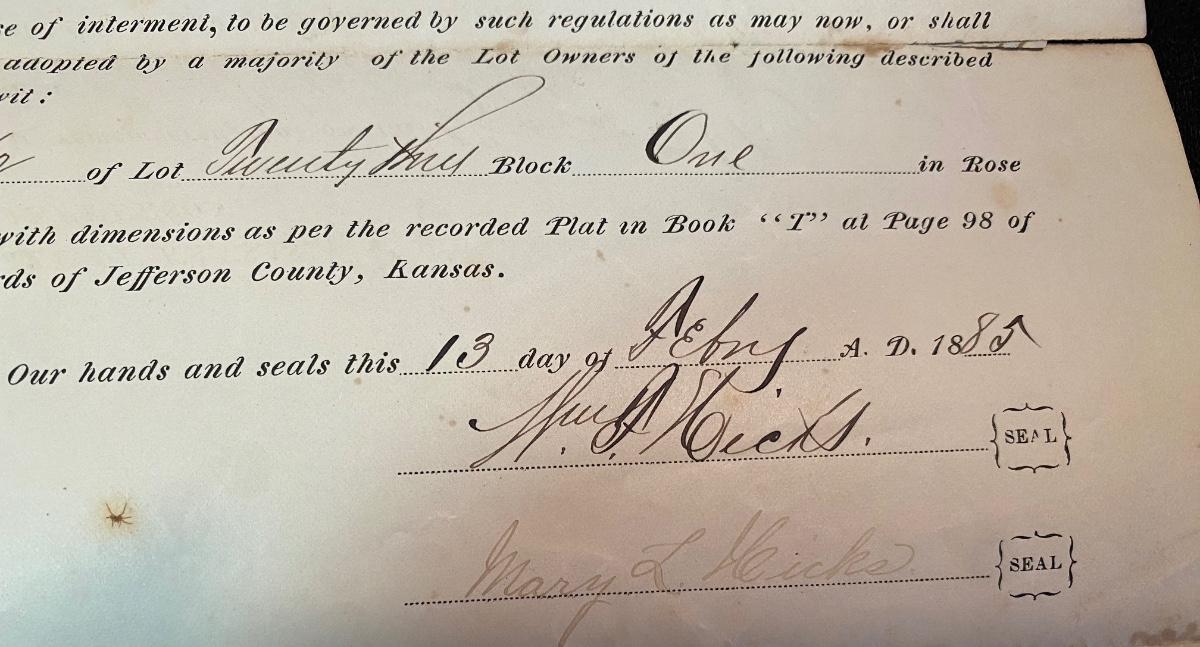 se of interment, to be governed by such regulations as may now, or shall
adopted by a majority of the Lot Owners of the following described
wit:
of Lot Twenty three Block One in Rose
with dimensions as per the recorded Plat in Book “T” at Page 98 of
rds of Jefferson County, Kansas.
Our hands and seals this 13 day of Febry A. D. 1885
Wm. F. Hicks. SEAL
Mary L. Hicks SEAL